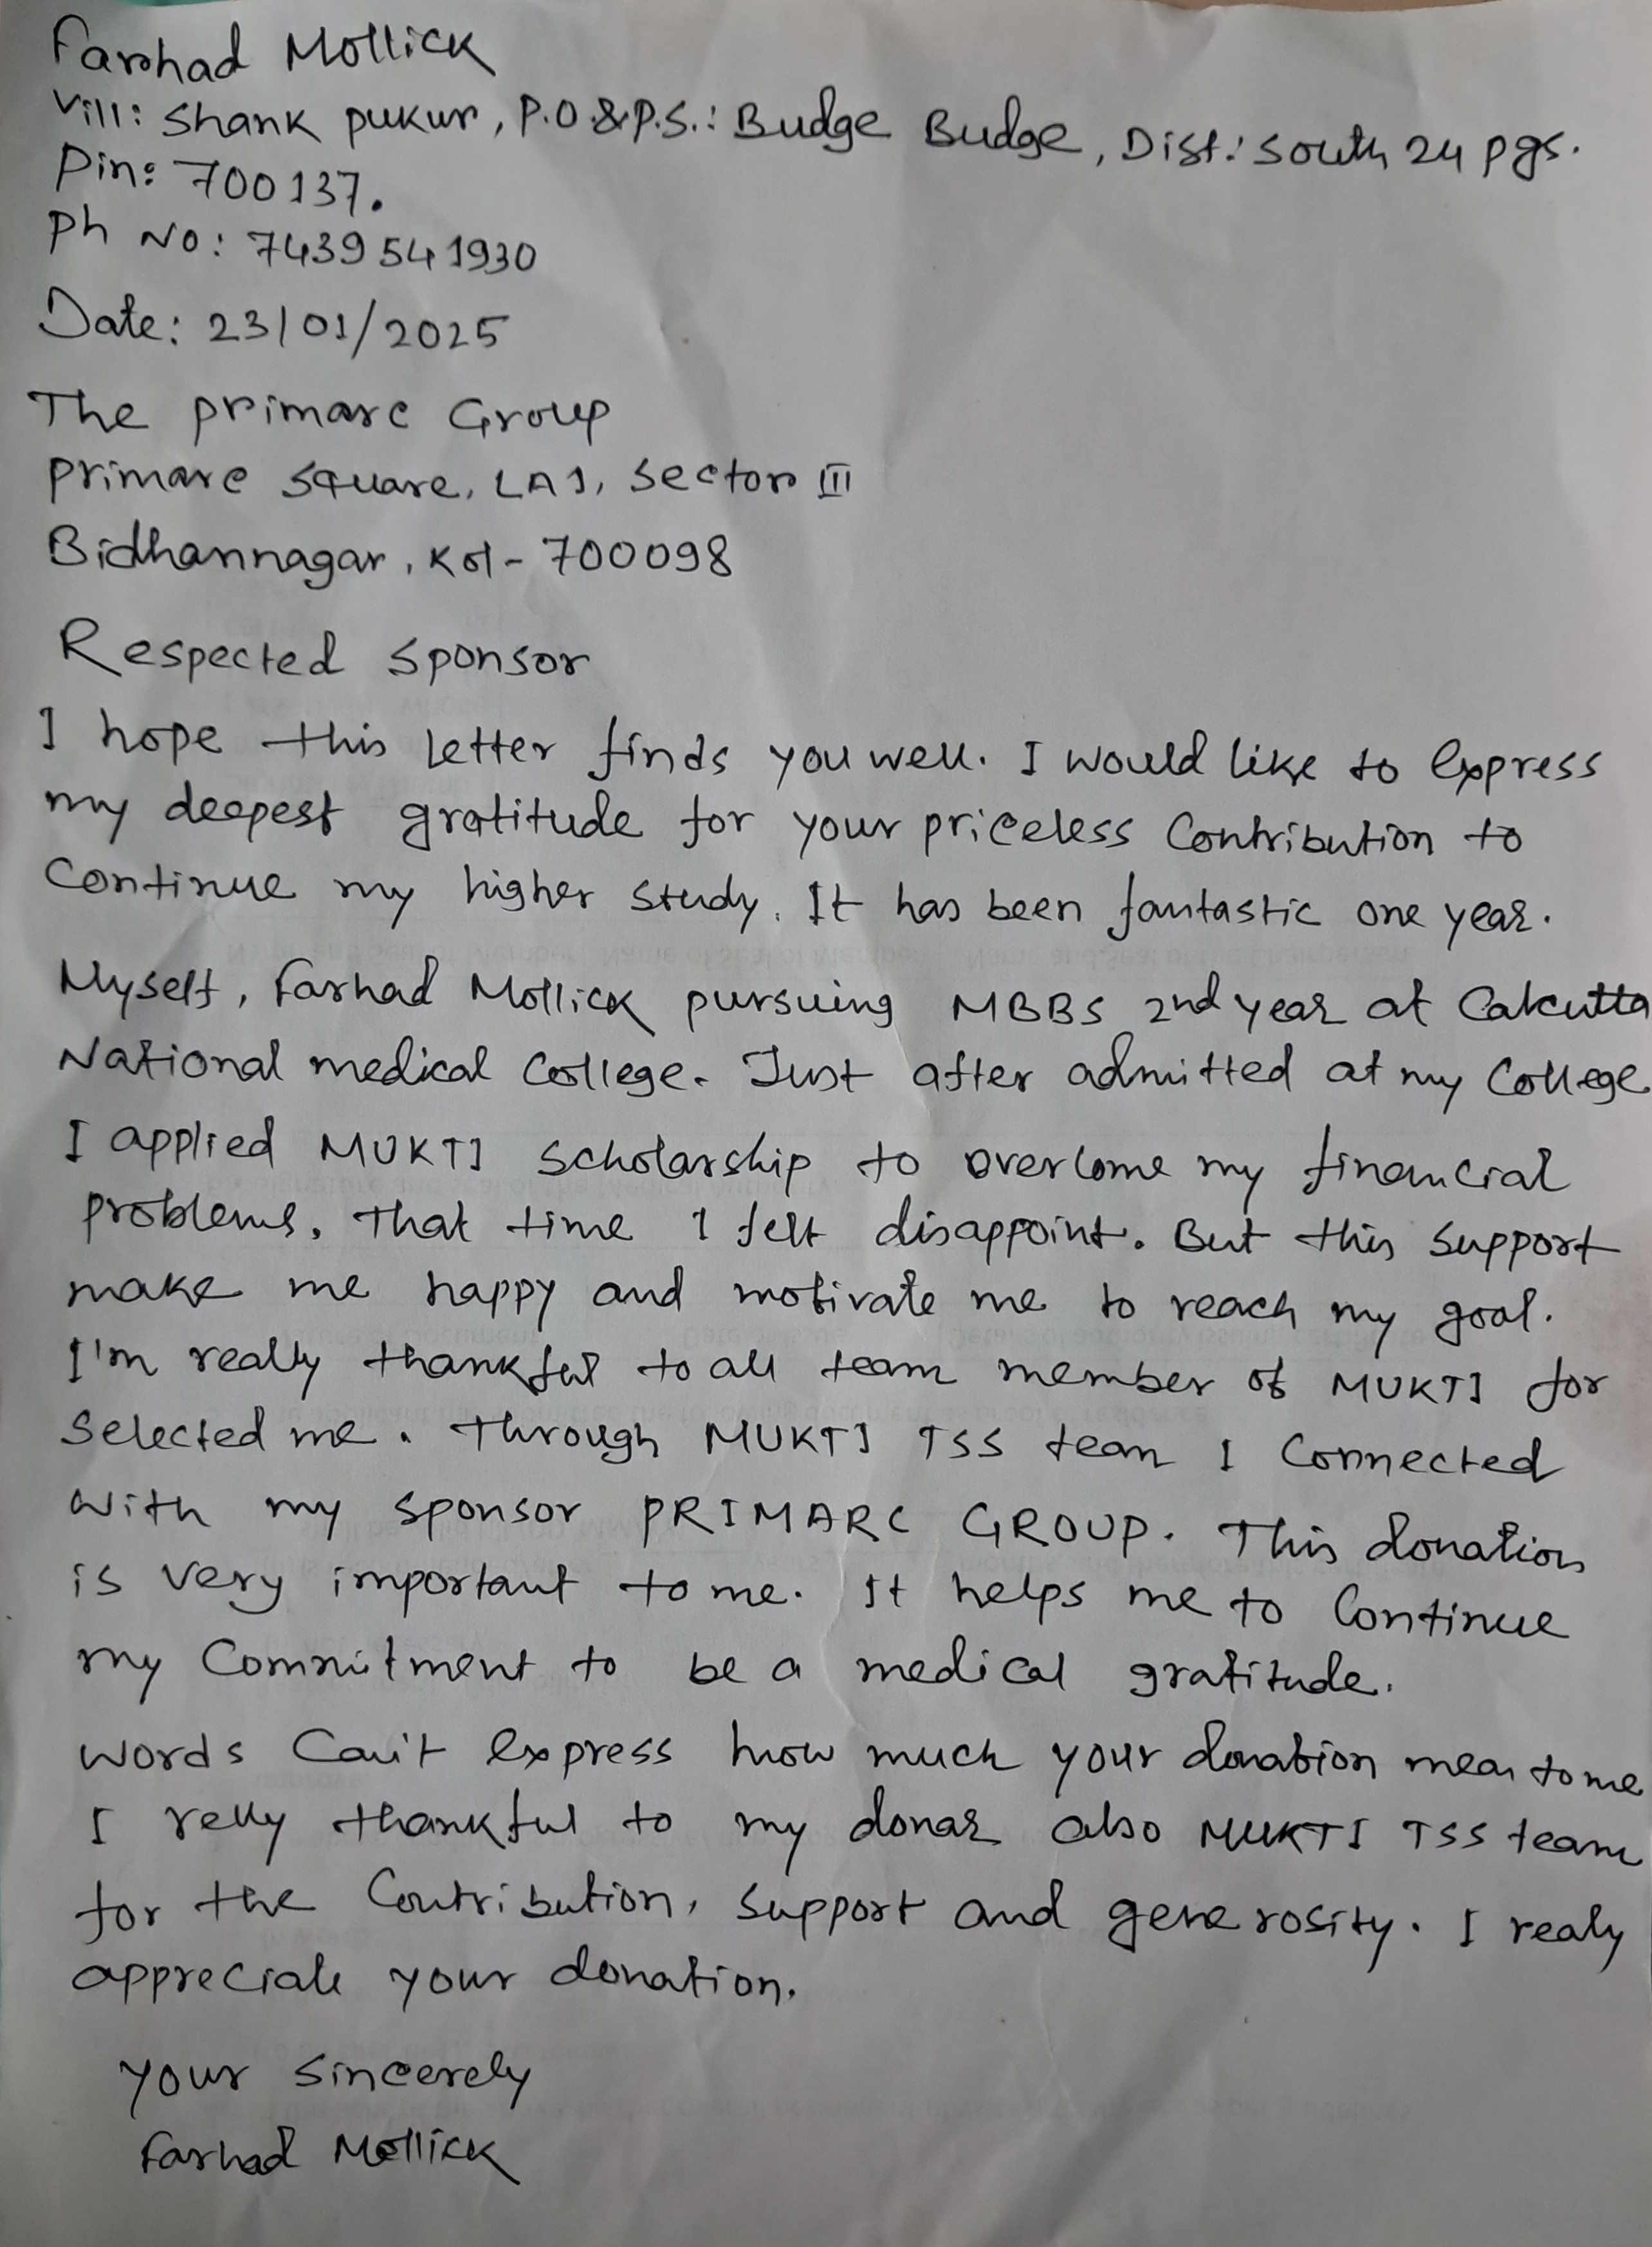 Farhad Mollick
Vill: Shank pukur, P.O.&P.S.: Budge Budge, Dist: South 24 pgs.
Pin: 700137.
Ph No: 7439541930
Date: 23/01/2025
The primarc Group
primarc Square, LA1, Sector III
Bidhannagar, Kol- 700098
Respected Sponsor
I hope this letter finds you well. I would like to express
my deepest gratitude for your priceless Contribution to
Continue my higher study. It has been fantastic one year.
Myself, Farhad Mollick pursuing MBBS 2nd year at Calcutta
National medical College. Just after admitted at my College
I applied MUKTI Scholarship to overcome my financial
problems. That time I felt disappoint. But this support
make me happy and motivate me to reach my goal.
I'm really thankful to all team member of MUKTI for
Selected me. Through MUKTI TSS team I Connected
with my sponsor PRIMARC GROUP. This donation
is very important to me. It helps me to Continue
my Commitment to be a medical gratitude.
Words Can't express how much your donation mean to me
I relly thankful to my donar also MUKTI TSS team
for the Contribution, support and generosity. I realy
appreciate your donation.
Your Sincerely
Farhad Mollick